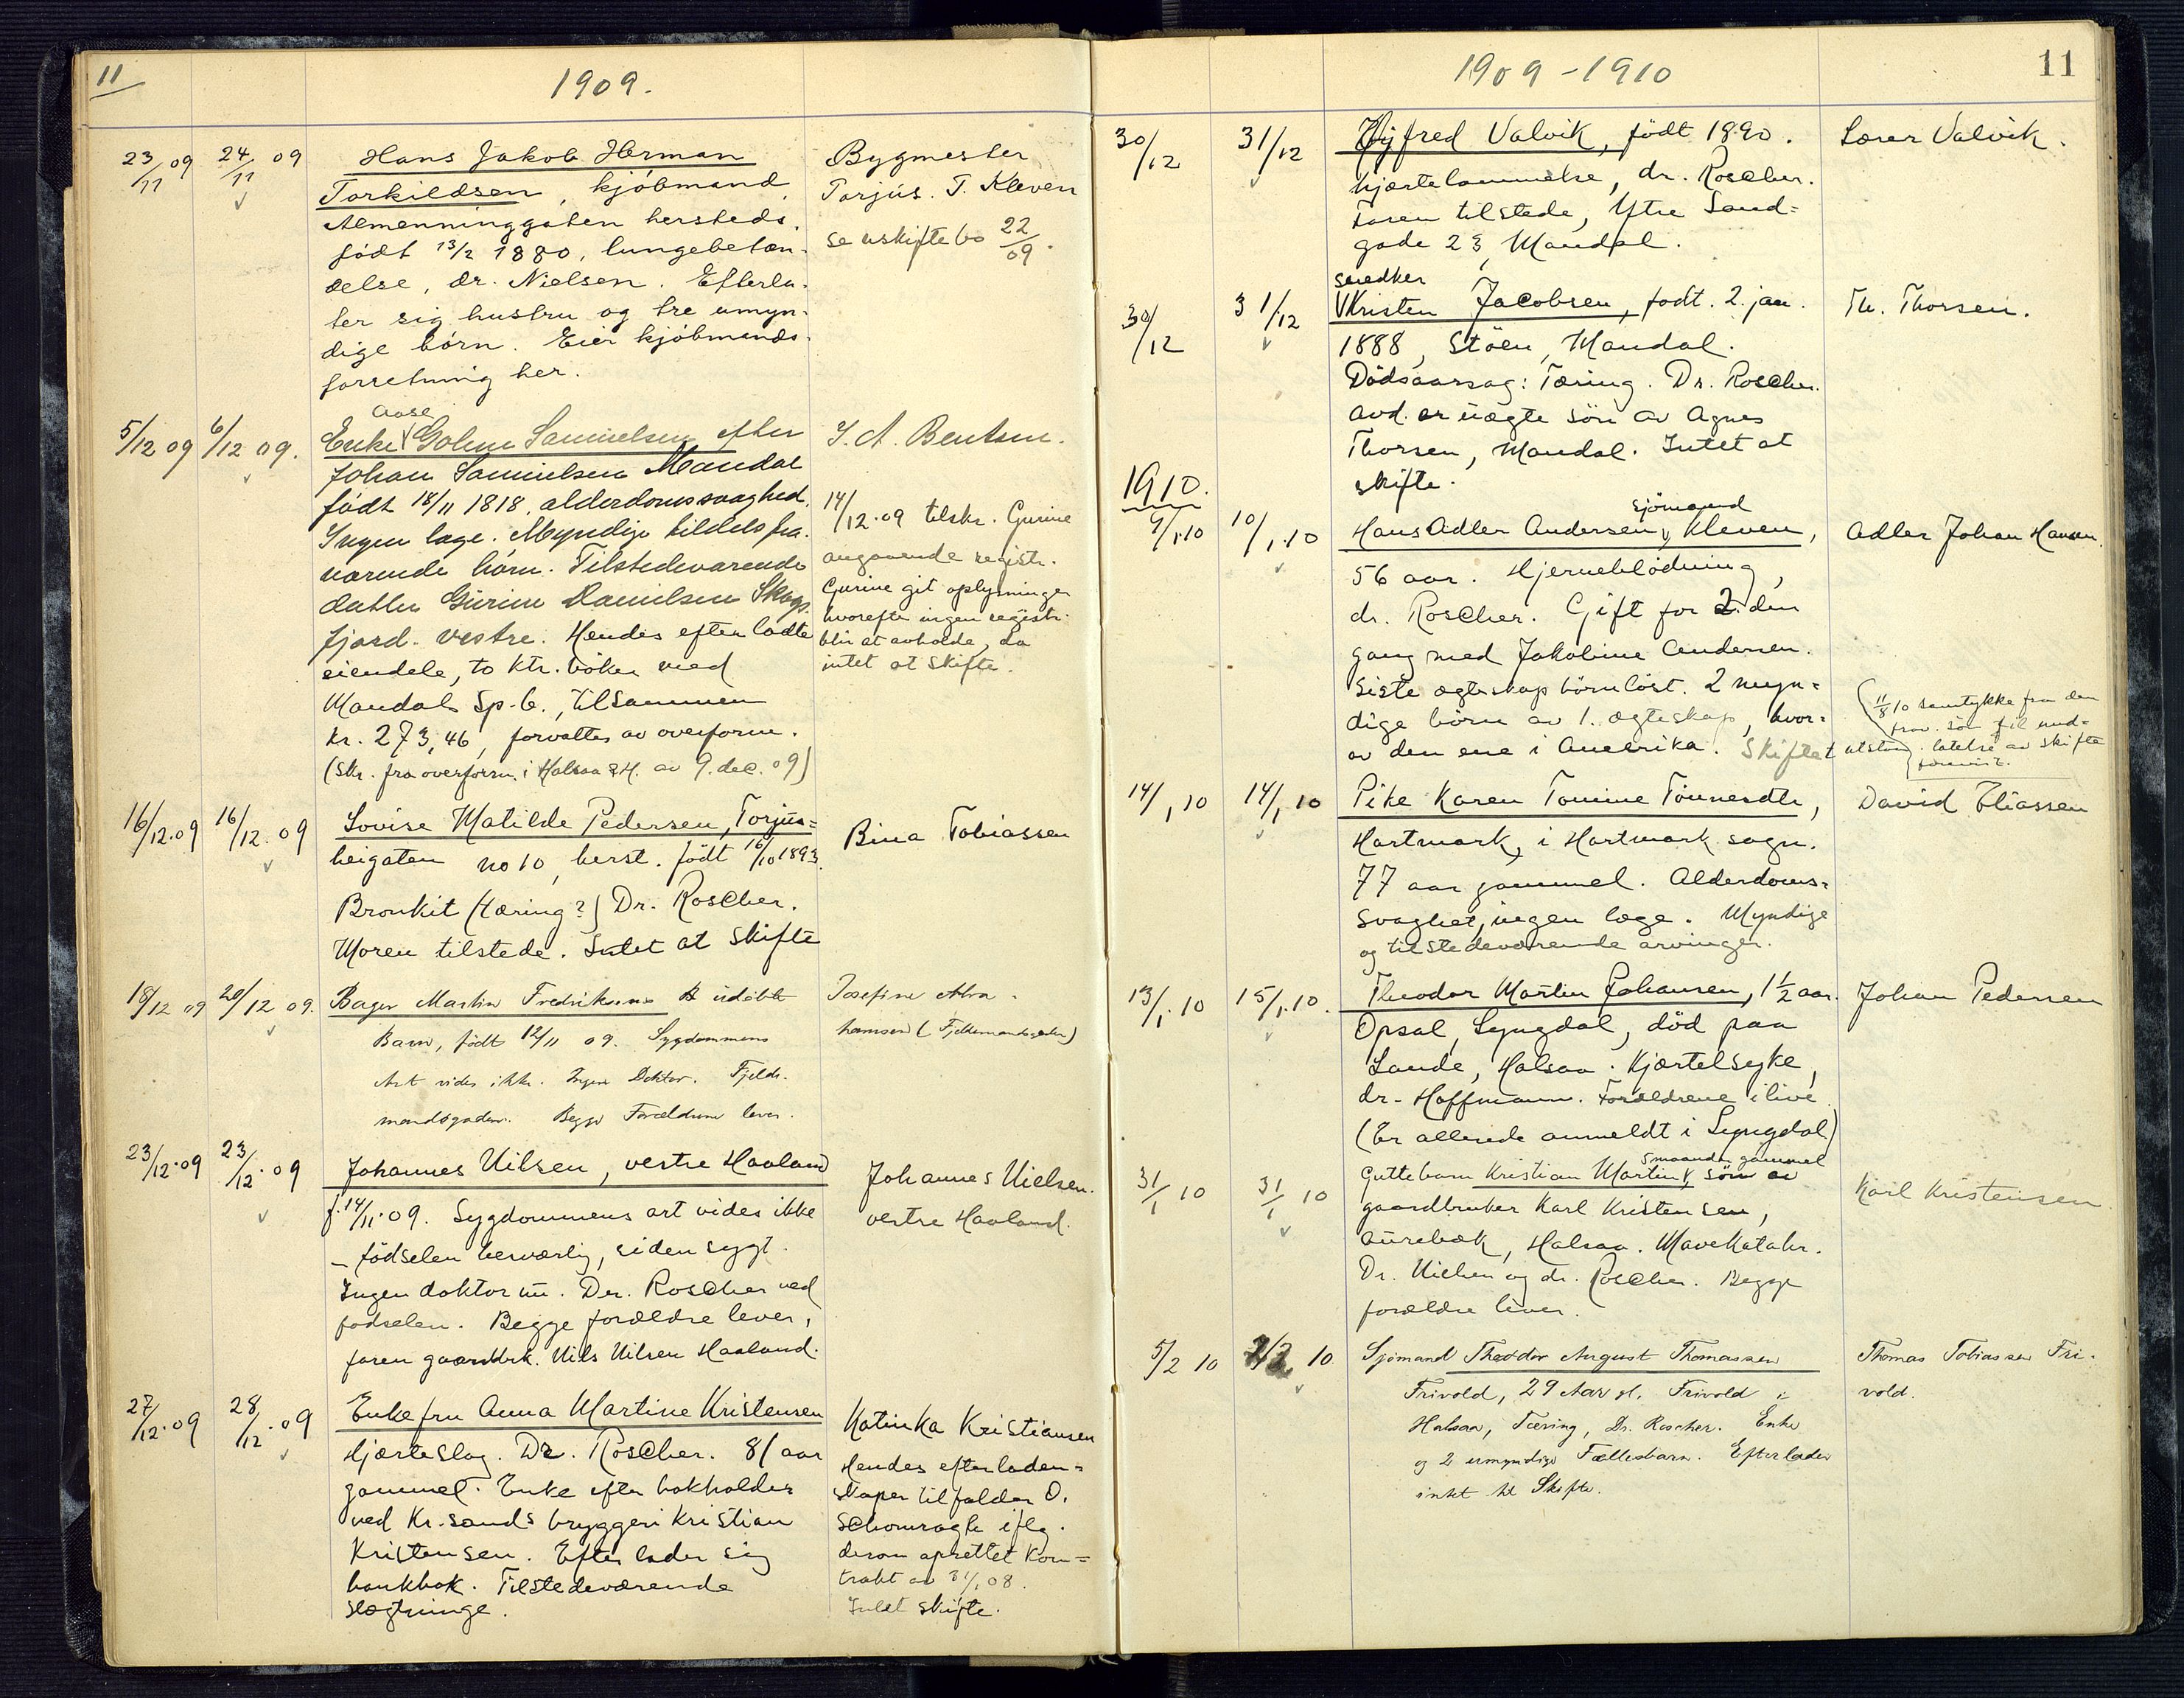 11
1909.
23/11 09
24/11 09
Hans Jakob Herman
Torkildsen, kjøbmand,
Almenninggaten hersteds,
født 13/2 1880, lungebetæn-
delse, dr. Nielsen. Efterla-
ter sig hustru og tre umyn-
dige børn. Eier kjøbmands-
forretning her.
Bygmester
Torjus. T. Kleven
se uskiftebo 22/09.
5/12 09
6/12 09.
Aase
Enke Golene Samuelsen efter
Johan Samuelsen Mandal
født 18/11 1818, alderdomssvaghed.
Ingen læge. Myndige tildels fra-
værende børn. Tilstedeværende
datter Gurine Danielsen Skogs-
fjord. vestre. Hendes efterladte
eiendele, to ktr. bøker med
Mandals Sp-b., tilsammen
kr. 273,46, forvaltes av overform.
(Skr. fra overform. i Halsaa & H. av 9. dec. 09)
J. A. Bentsen.
14/12.09 tilskr. Gurine
angaaende registr.
Gurine git oplysninger
hvorefter ingen registr.
blir at avholde, da
intet at skifte.
16/12.09
16/12.09
Lovise Matilde Pedersen, Torjus=
heigaten no 10, herst. født 16/10 1893.
Bronkit (tæring?) Dr. Roscher.
Moren tilstede. Intet at skifte
Bina Tobiassen
18/12 09
20/12 09.
Bager Martin Fredriksens udøbte
Barn, født 12/11 09. Sygdommens
Art vides ikke. Ingen Doktor. Fjelds-
mandsgaden. Begge Forældrene lever.
Josefine Abra-
hamsen (Fjeldmandsgaden)
23/12.09
23/12.09
Johannes Nilsen, vestre Haaland
f. 14/11.09. Sygdommens art vides ikke
– fødselen besværlig, siden sygt.
Ingen doktor nu. Dr. Roscher ved
fødselen. Begge forældre lever,
faren gaardbrk. Nils Nilsen Haaland.
Johannes Nielsen.
vestre Haaland.
27/12.09
28/12.09
Enkefru Anna Martine Kristensen
Hjærteslag. Dr. Roscher. 81 aar
gammel. Enke efter bokholder
ved Kr.sands bryggeri Kristian
Kristensen. Efterlader sig
bankbok. Tilstedeværende
slægtninge.
Katinka Kristiansen
Hendes efterladen=
skaper tilfalder O.
Schomragh iflg.
derom oprettet kon=
trakt av 31/1 08.
Intet skifte.
1909-1910
11
30/12
31/12
Hjfred Valvik, født 1890.
hjærtelammelse, dr. Roscher.
Faren tilstede, Ytre Sand=
gade 23, Mandal.
Lærer Valvik.
30/12
31/12
snedker
Kristen Jacobsen, født. 2. jan.
1888, Støen, Mandal.
Dødsaarsag: Tæring. Dr. Roscher.
Avd. er uægte søn av Agnes
Thorsen, Mandal. Intet at
skifte.
Th. Thorsen.
1910.
9/1.10
10/1.10
sjømand
Hans Adler Andersen, Kleven,
56 aar. Hjerneblødning,
dr. Roscher. Gift for 2. den
gang med Jakobine Andersen.
Siste ægteskap børnløst. 2 myn=
dige børn av 1. ægteskap, hvor=
av den ene i Amerika. Skiftet utstaar.
Adler Johan Hansen.
11/8 10 samtykke fra den
frav. søn til und=
latelse av skifte
14/1 10
14/1 10
Pike Karen Tomine Tønnesdtr,
Hartmark, i Hartmark sogn.
77 aar gammel. Alderdoms=
svaghet, ingen læge. Myndige
og tilstedeværende arvinger.
David Eliassen
13/1.10
15/1.10.
Theodor Martin Johansen, 1½ aar.
Opsal, Lyngdal, død paa
Lande, Halsaa. Kjærtelsyke,
dr. Hoffmann. Forældrene ilive
(Er allerede anmeldt i Lyngdal)
Johan Pedersen
31/1 10
31/1 10
5 maander gammel
Guttebarn Kristian Martin, søn av
gaardbruker Karl Kristensen,
Aurebæk, Halsaa. Mavekatahr.
Dr. Nielsen og dr. Roscher. Begge
forældre lever.
Karl Kristensen
5/2 10
7/2 10.
Sjømand Theodor August Thomassen
Frivold, 29 Aar gl. Frivold i
Halsaa, Tæring, Dr. Roscher. Enke
og 2 umyndige Fællesbarn. Efterlader
intet til Skifte.
Thomas Tobiassen Fri-
vold.